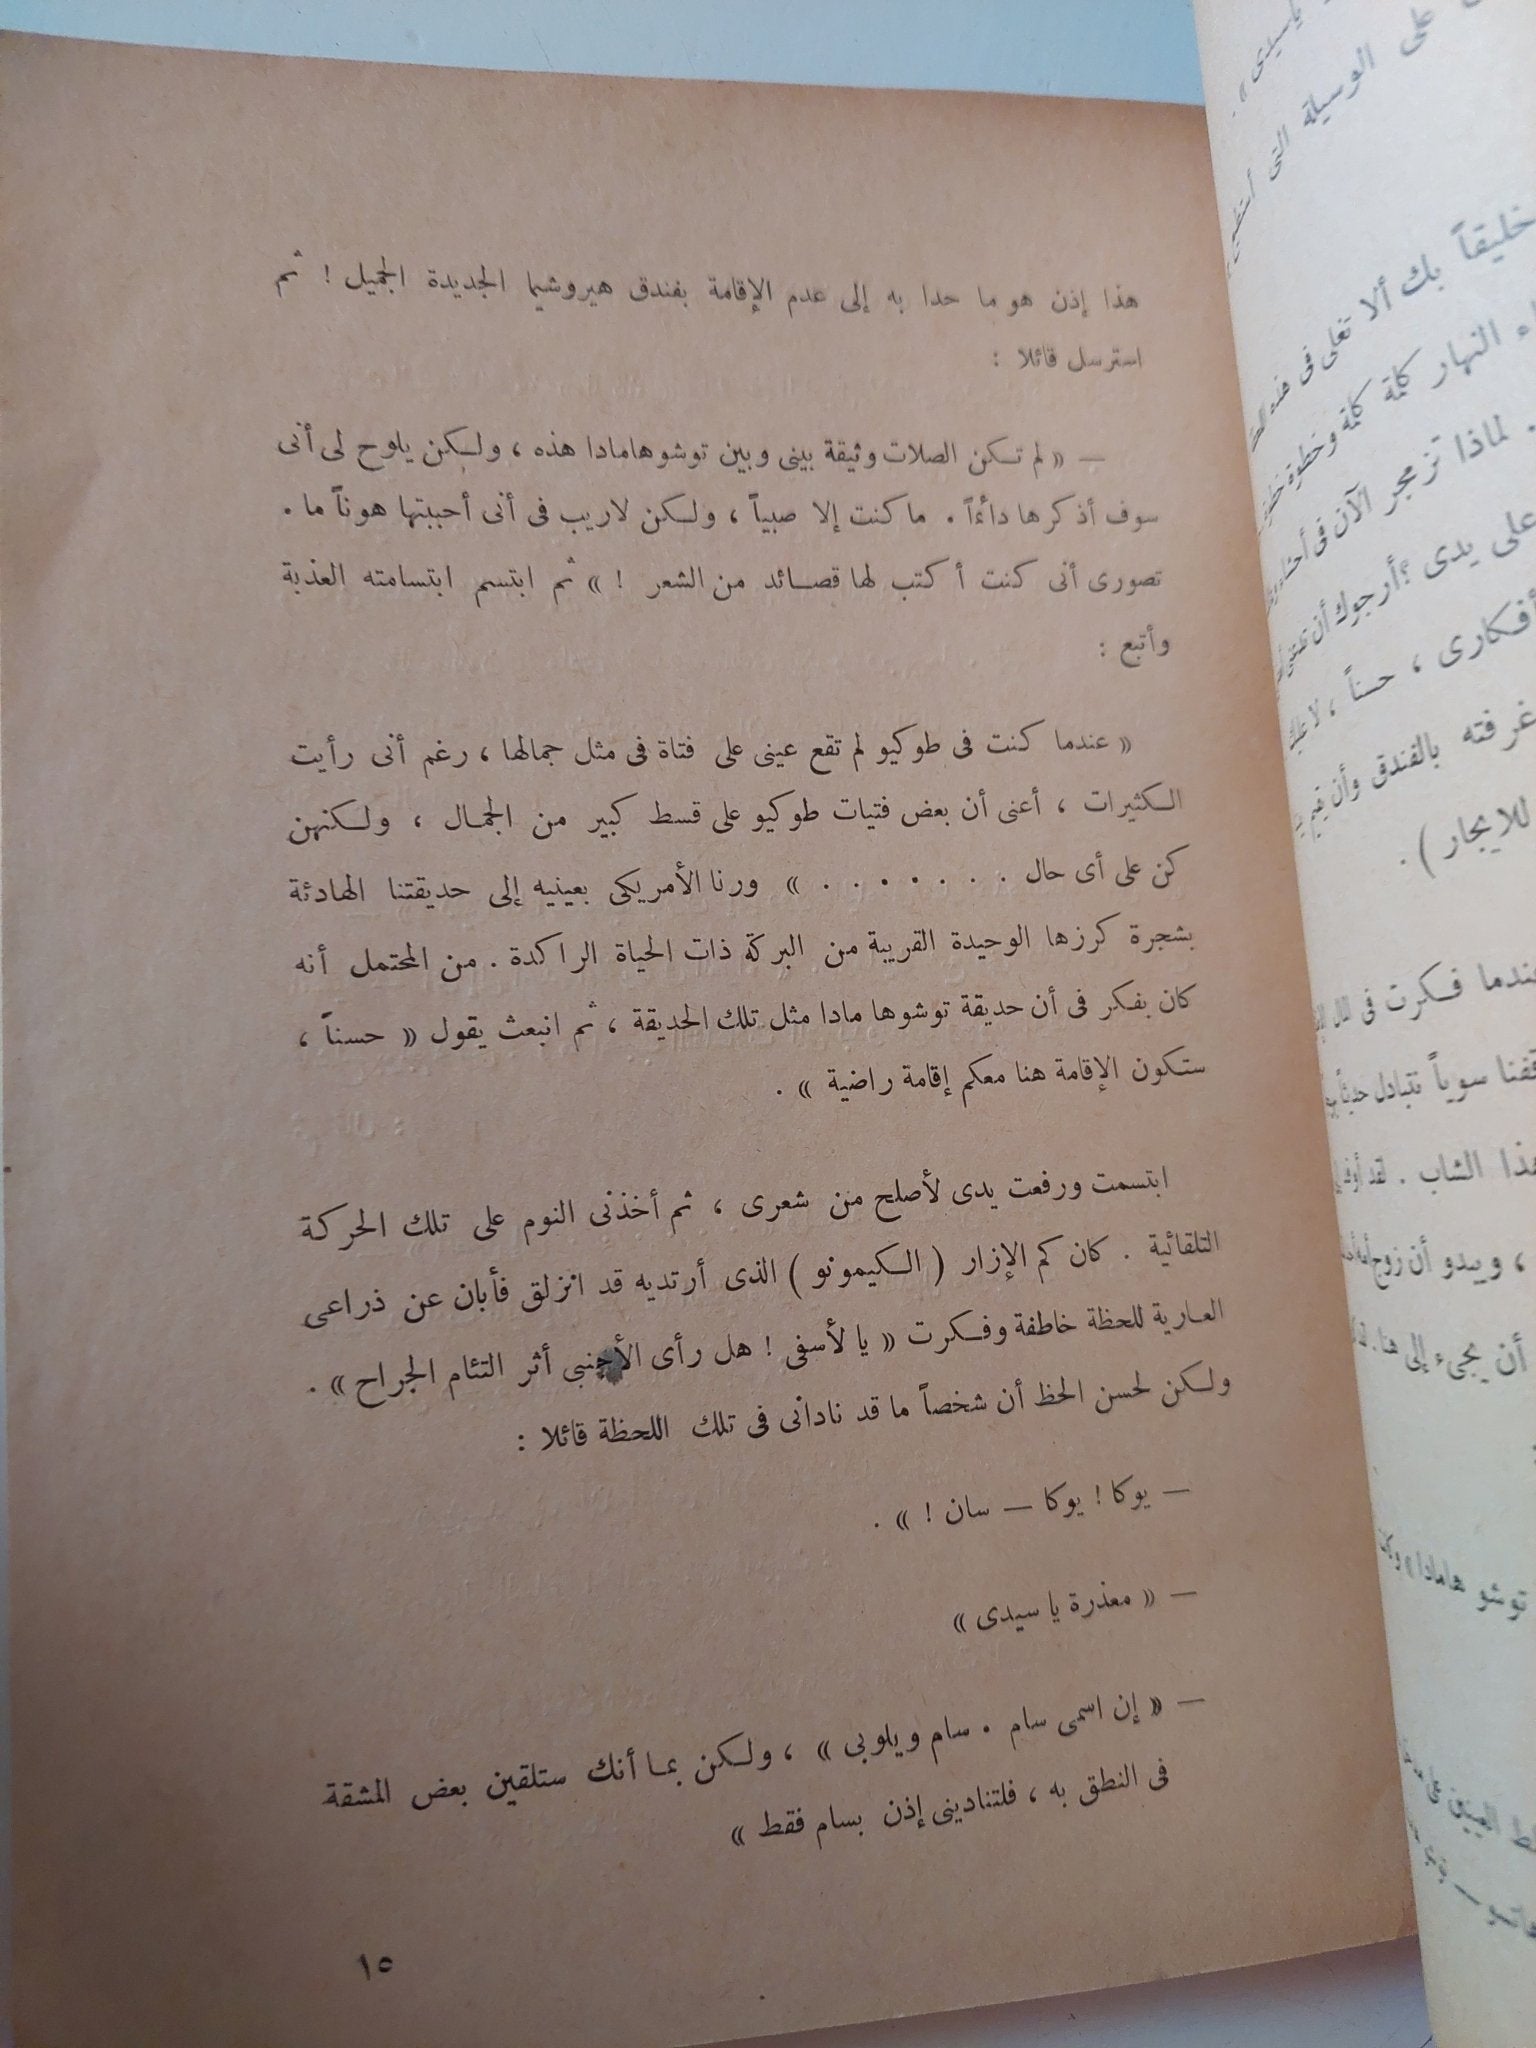 هذا إذن هو ما حدا به إلى عدم الإقامة بفندق هيروشيما الجديدة الجميل ! ثم
استرسل قائلا :
— « لم تكن الصلات وثيقة بينى وبين توشوهامادا هذه ، ولكن يلوح لى أنى
سوف أذكرها دائماً . ما كنت إلا صبياً ، ولكن لاريب فى أنى أحببتها هوناً ما .
تصورى أنى كنت أكتب لها قصائد من الشعر ! » ثم ابتسم ابتسامته العذبة
وأتبع :
« عندما كنت فى طوكيو لم تقع عينى على فتاة فى مثل جمالها ، رغم أنى رأيت
الكثيرات ، أعنى أن بعض فتيات طوكيو على قسط كبير من الجمال ، ولكنهن
كن على أى حال . . . . . . . . » ورنا الأمريكى بعينيه إلى حديقتنا الهادئة
بشجرة كرزها الوحيدة القريبة من البركة ذات الحياة الراكدة . من المحتمل أنه
كان يفكر فى أن حديقة توشوها مادا مثل تلك الحديقة ، ثم انبعث يقول « حسناً ،
ستكون الإقامة هنا معكم إقامة راضية » .
ابتسمت ورفعت يدى لأصلح من شعرى ، ثم أخذنى النوم على تلك الحركة
التلقائية . كان كم الإزار ( الكيمونو ) الذى أرتديه قد انزلق فأبان عن ذراعى
العارية للحظة خاطفة وفكرت « يا لأسفى ! هل رأى الأجنبى أثر التئام الجراح » .
ولكن لحسن الحظ أن شخصاً ما قد نادانى فى تلك اللحظة قائلا :
— يوكا ! يوكا — سان ! » .
— « معذرة يا سيدى »
— « إن اسمى سام . سام ويلوبى » ، ولكن بما أنك ستلقين بعض المشقة
فى النطق به ، فلتنادينى إذن بسام فقط »
١٥
ياسيدى » .
على الوسيلة التى
خليقاً بك ألا تغلى فى هذه
النهار كلمة كلمة وخطوة
. لماذا تزمجر الآن فى
على يدى ؟ أرجوك أن
أفكارى ، حسناً ، لا عليك
غرفته بالفندق وأن
للايجار ) .
عندما فكرت فى المال
سوياً نتبادل
هذا الشاب . لقد
، ويبدو أن زوج
أن يجىء إلى هنا .
توشو هامادا